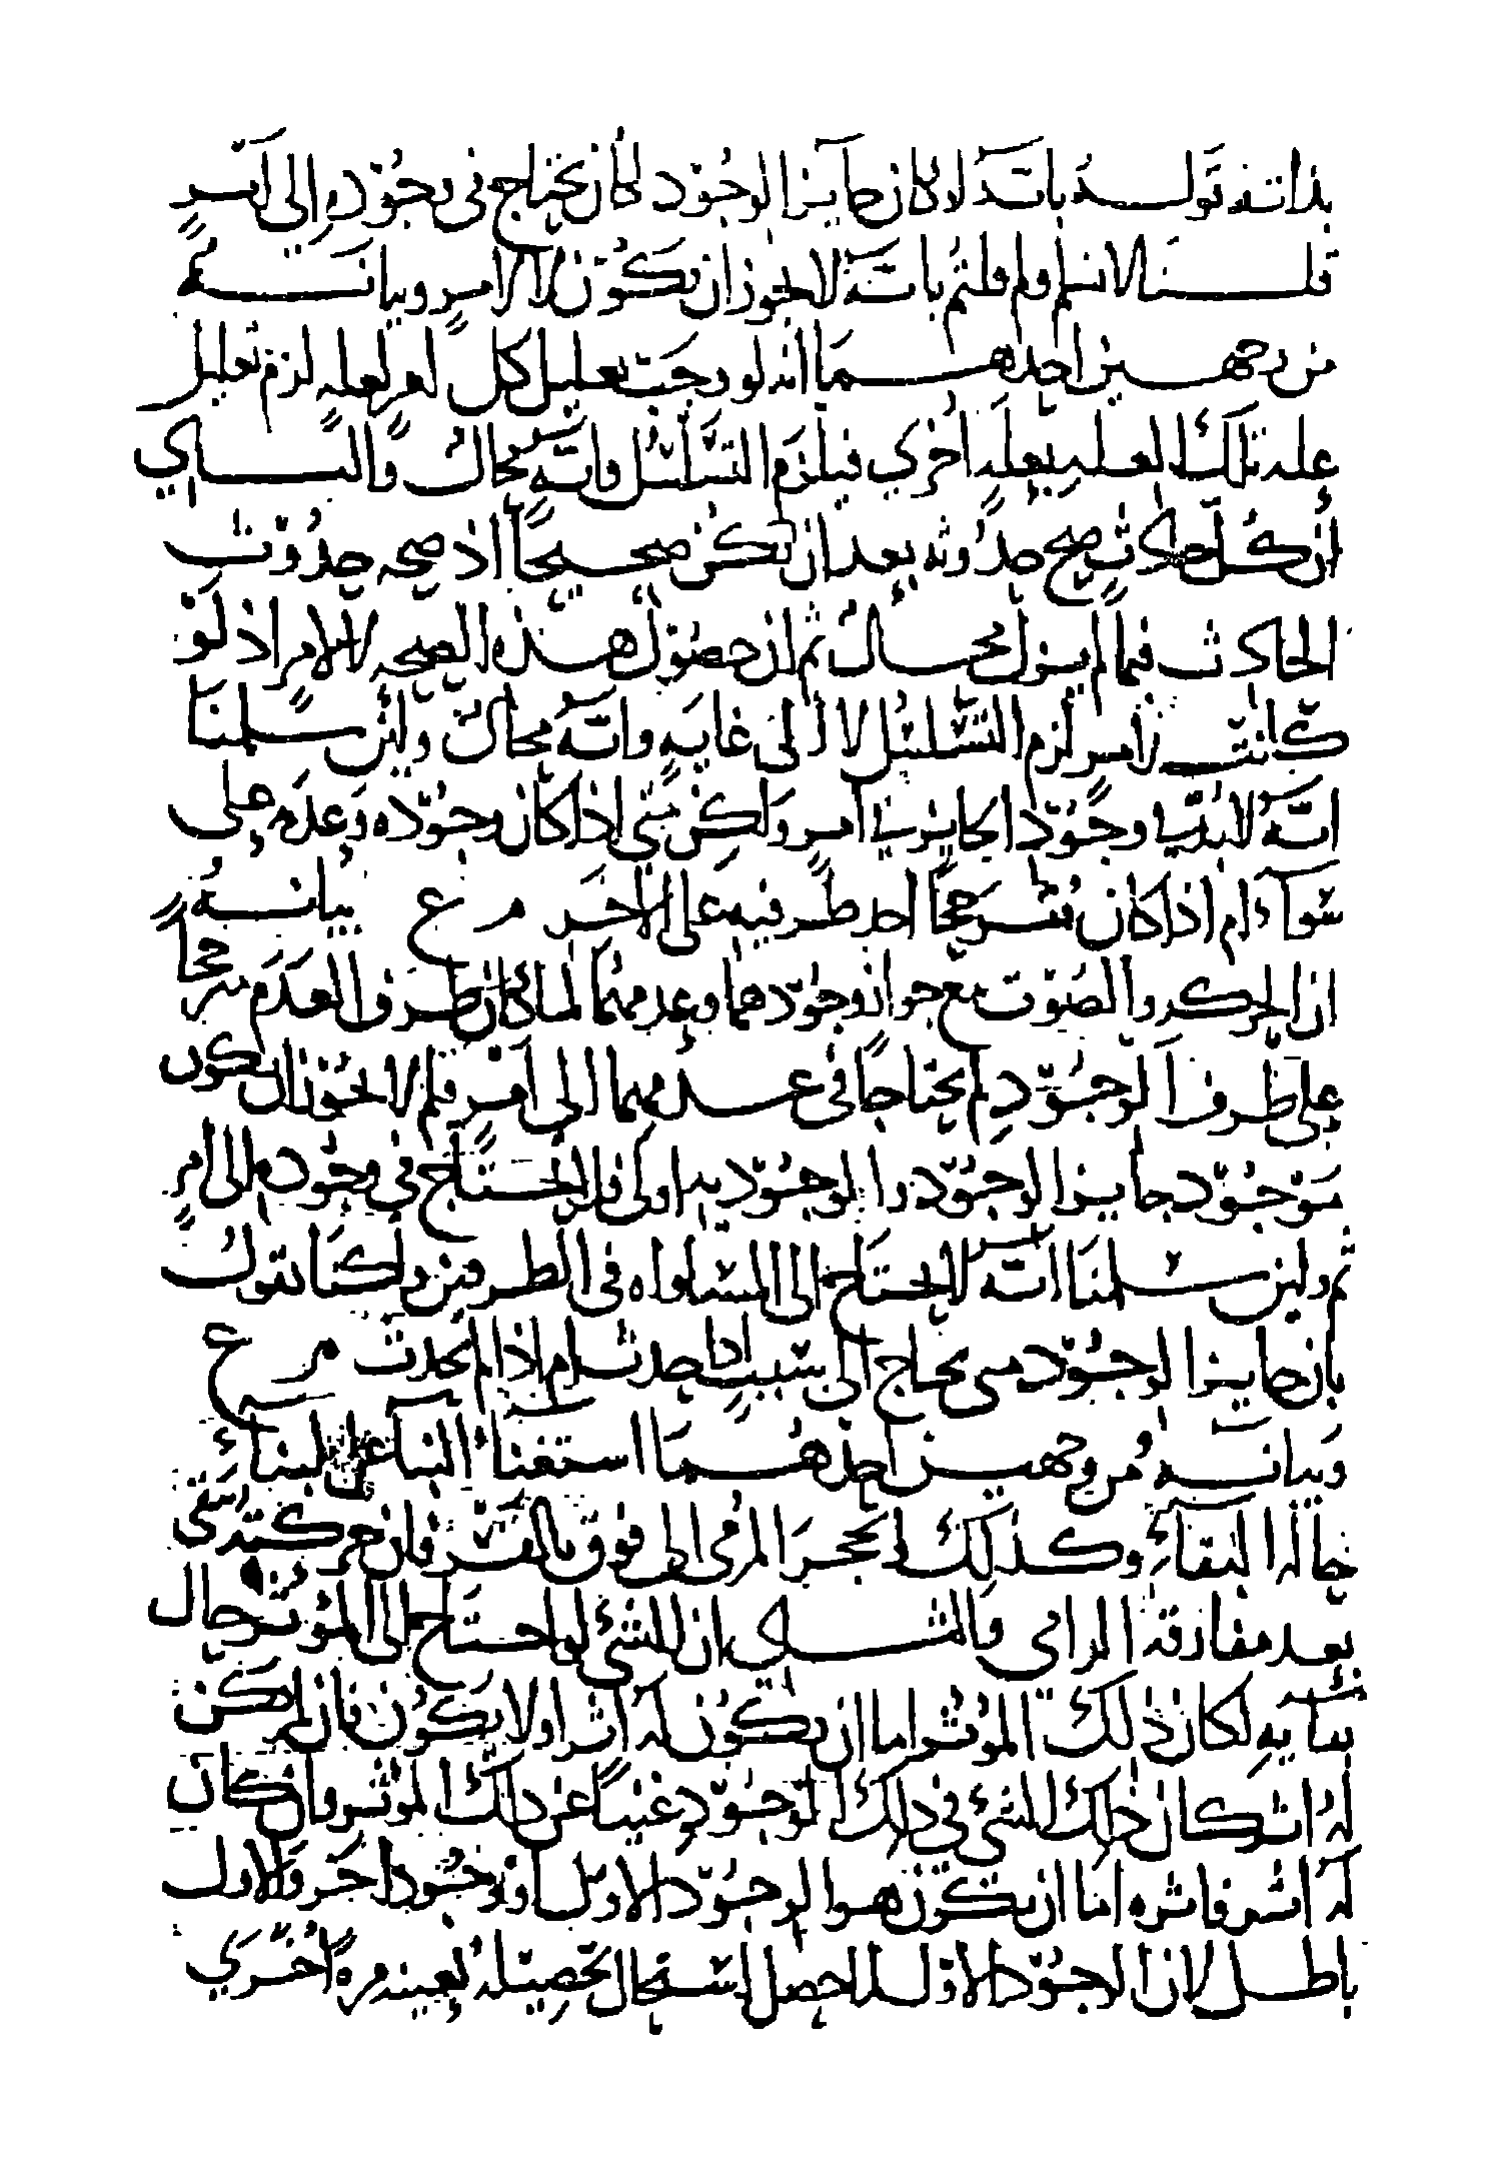 بذاته قوله بانه لو كان جايز الوجود لكان يحتاج فى وجوده إلى امرٍ
قلنا لا نسلم ولم قلتم بانه لا يجوز ان يكون لا لامرٍ وبيانه
من وجهين احدهما انه لو وجب تعليل كل امر لعلهٍ لزم تعليل
عله تلك العله بعلهٍ اخرى فيلزم التسلسل وانه محال والثانى
أن كل حادث صح حدوثه بعد ان لم يكن صحيحاً اذ صحه حدوث
الحادث فيما لم يزل محال ثم ان حصول هذه الصحه لا لامر اذ لو
كانت لامرٍ لزم التسلسل لا الى غايه وانه محال ولئن سلمنا
انه لابد فى وجود الجايز من امر ولكن متى اذا كان وجوده وعدمه على
سواء ام اذا كان مترجحاً احد طرفيه على الاخر م ع بيانه
ان الحركه والصوت مع جواز وجودهما وعدمهما لما كان طرف العدم مترجحاً
على طرف الوجود لم يحتاجا فى عدمهما الى امرٍ فلم لا يجوز ان يكون
موجود جايز الوجود والوجود به اولى فلا يحتاج فى وجوده الى امرٍ
ثم ولئن سلمنا انه لا يحتاج الى المساواه فى الطرفين ولكنا نقول
بان جايز الوجود متى يحتاج الى سببٍ اذا حدث ام اذا لم يحدث م ع
وبيانه من وجهين احدهما استغناء البناء عن البناء
حاله البقاء وكذلك الحجر المرمى الى فوق بالقسر فان حركته تبقى
بعد مفارقه الرامى والثانى ان الشئ لو احتاج الى المؤثر حال
بقايه لكان ذلك المؤثر اما ان يكون له اثر او لا يكون فان لم يكن
له اثر كان ذلك الشئ فى ذلك الوجود غنياً عن ذلك المؤثر وان كان
له اثر فاثره اما ان يكون هو الوجود الاول او وجود اخر والاول
باطل لان الوجود الاول لما حصل استحال تحصيله بعينه مرةً أخرى